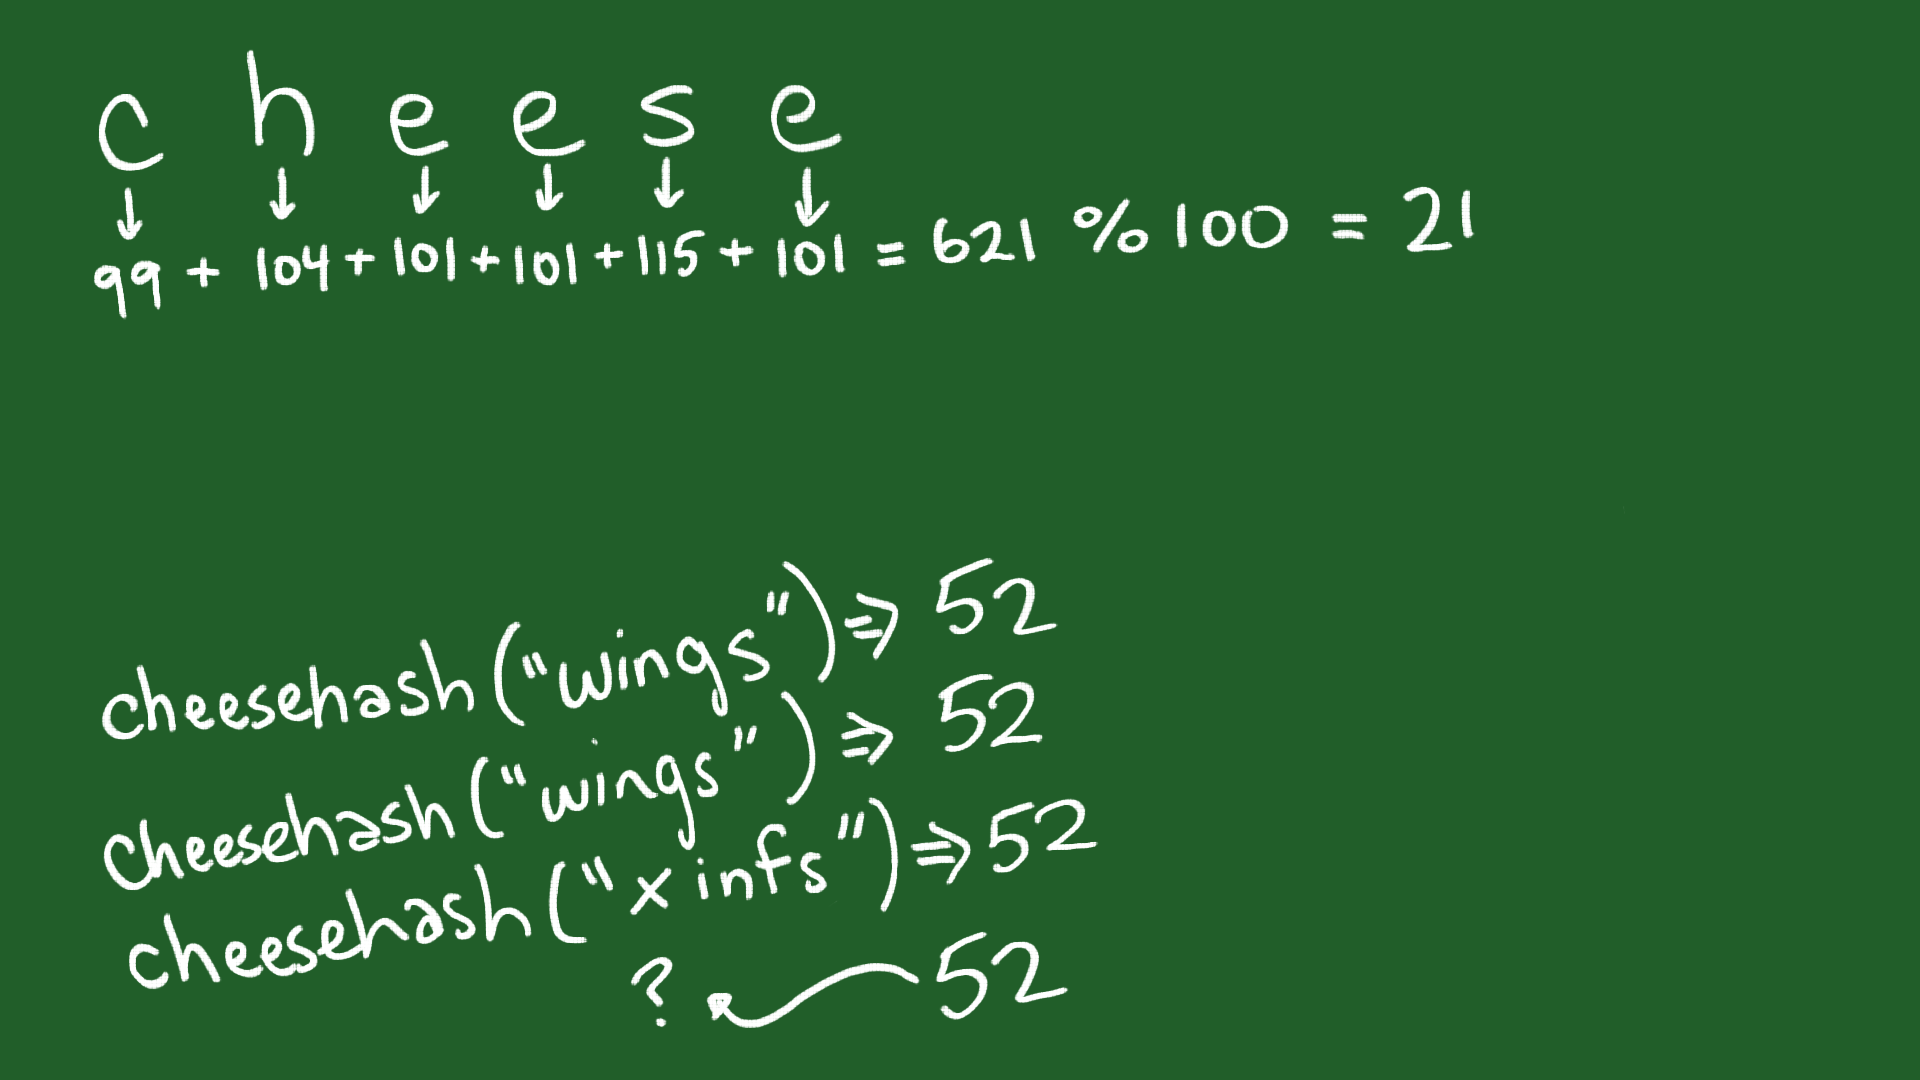 c h e e s e
↓ ↓ ↓ ↓ ↓ ↓
99 + 104 + 101 + 101 + 115 + 101 = 621 % 100 = 21
cheesehash("wings") ⇒ 52
cheesehash("wings") ⇒ 52
cheesehash("xinfs") ⇒ 52
? ← 52